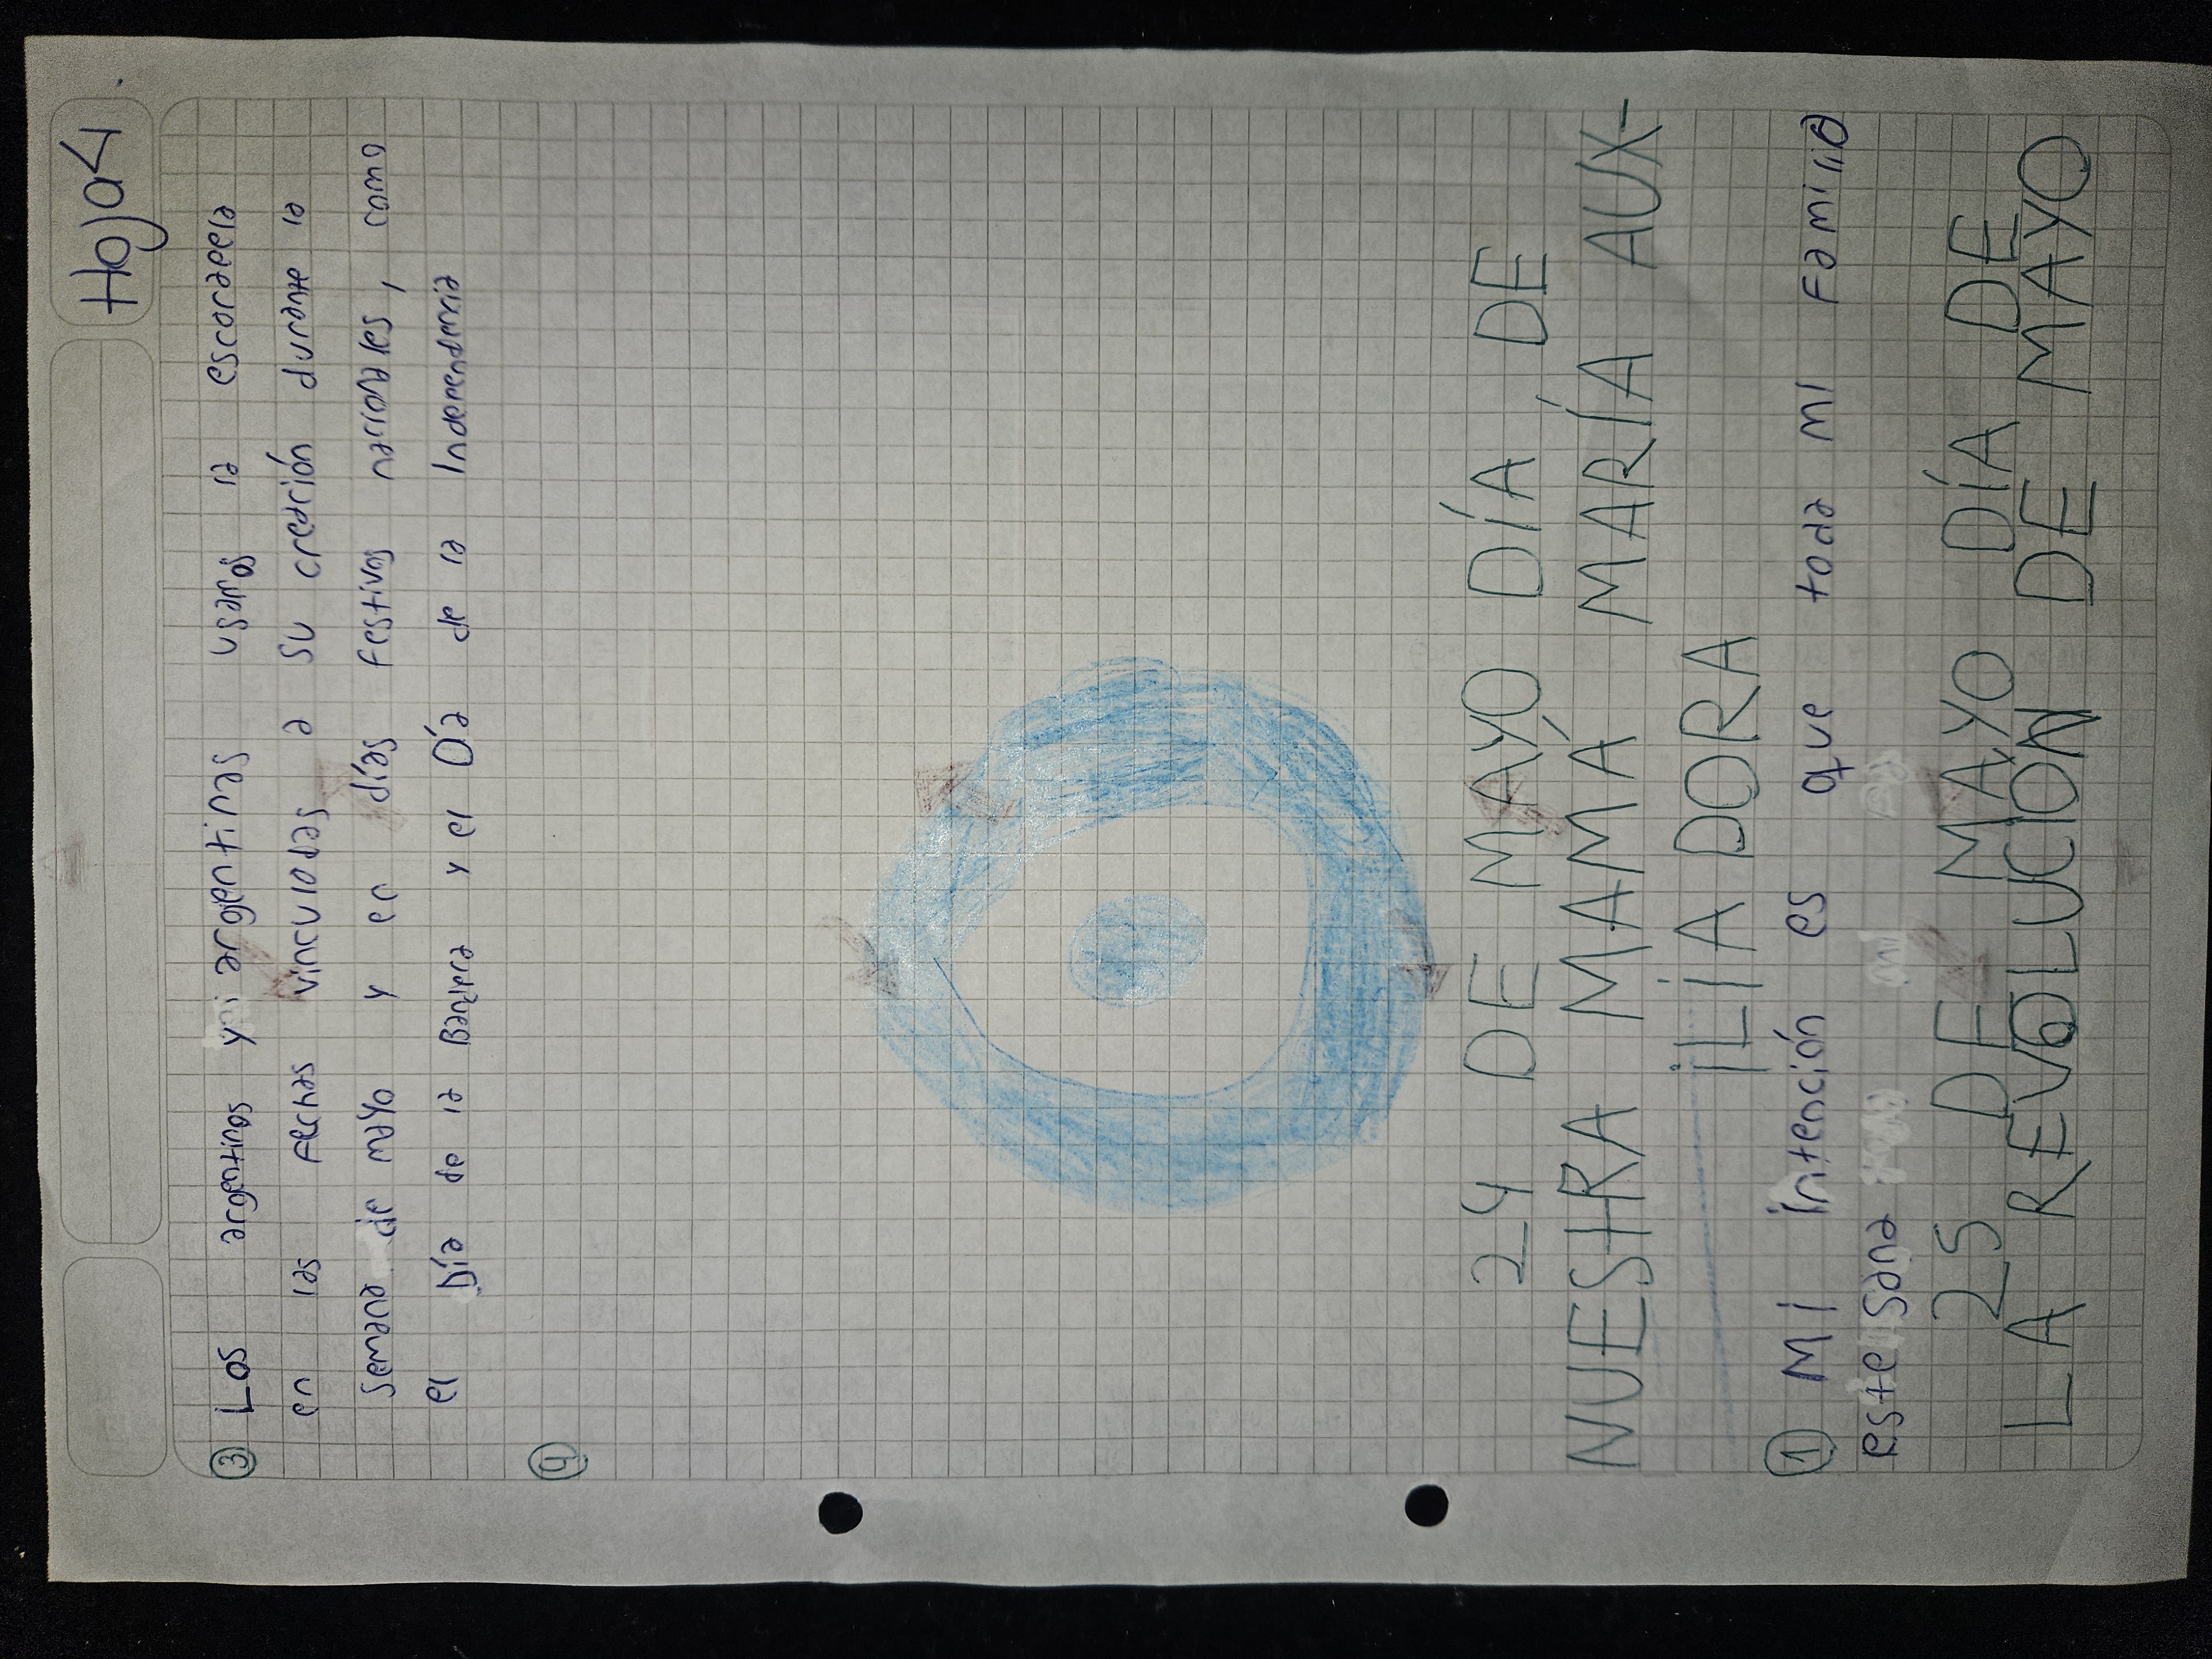 Hoja 4
③ Los argentinos y argentinas usamos la escarapela
en las fechas vinculadas a su creación durante la
semana de mayo y en días festivos nacionales, como
el Día de la Bandera y el Día de la Independencia
④
24 DE MAYO DÍA DE
NUESTRA MAMÁ MARÍA AUX-
ILIADORA
① Mi intención es que toda mi familia
este sana
25 DE MAYO DÍA DE
LA REVOLUCIÓN DE MAYO